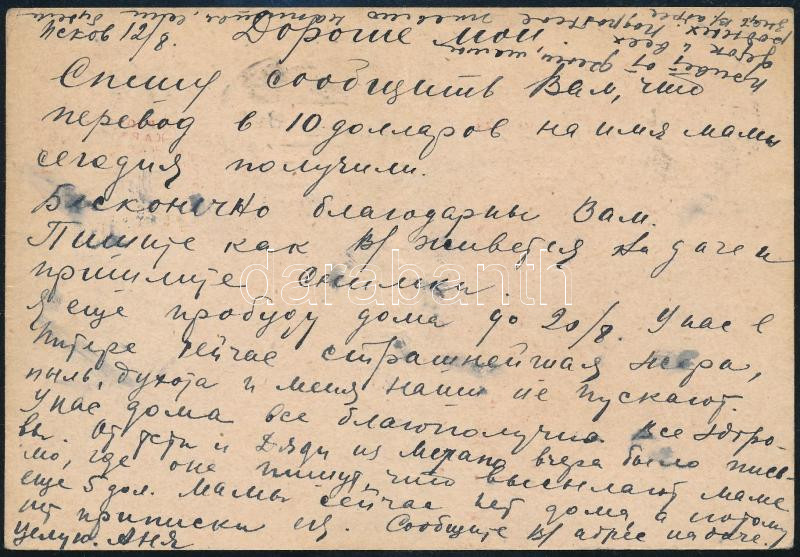 Псков 12/8. Дорогие мои
Спешу сообщить Вам, что
перевод в 10 долларов на имя мамы
сегодня получили.
Бесконечно благодарны Вам.
Пишите как В/ живется на даче и
пришлите снимки.
Я еще пробуду дома до 20/8. У нас в
Питере сейчас страшнейшая жара,
пыль, духота и меня наши не пускают.
У нас дома все благополучно. Все здоро-
вы. От тети и дяди из Мерано вчера было пись-
мо, где они пишут, что высылают маме
еще 5 дол. Мамы сейчас нет дома, а потому
нет приписки её. Сообщите В/ адрес на даче.
Целую. Аня
Привет от мамы,
деток и всех
родных. Подробное письмо напишу, если буду
знать В/ адрес
darabanth